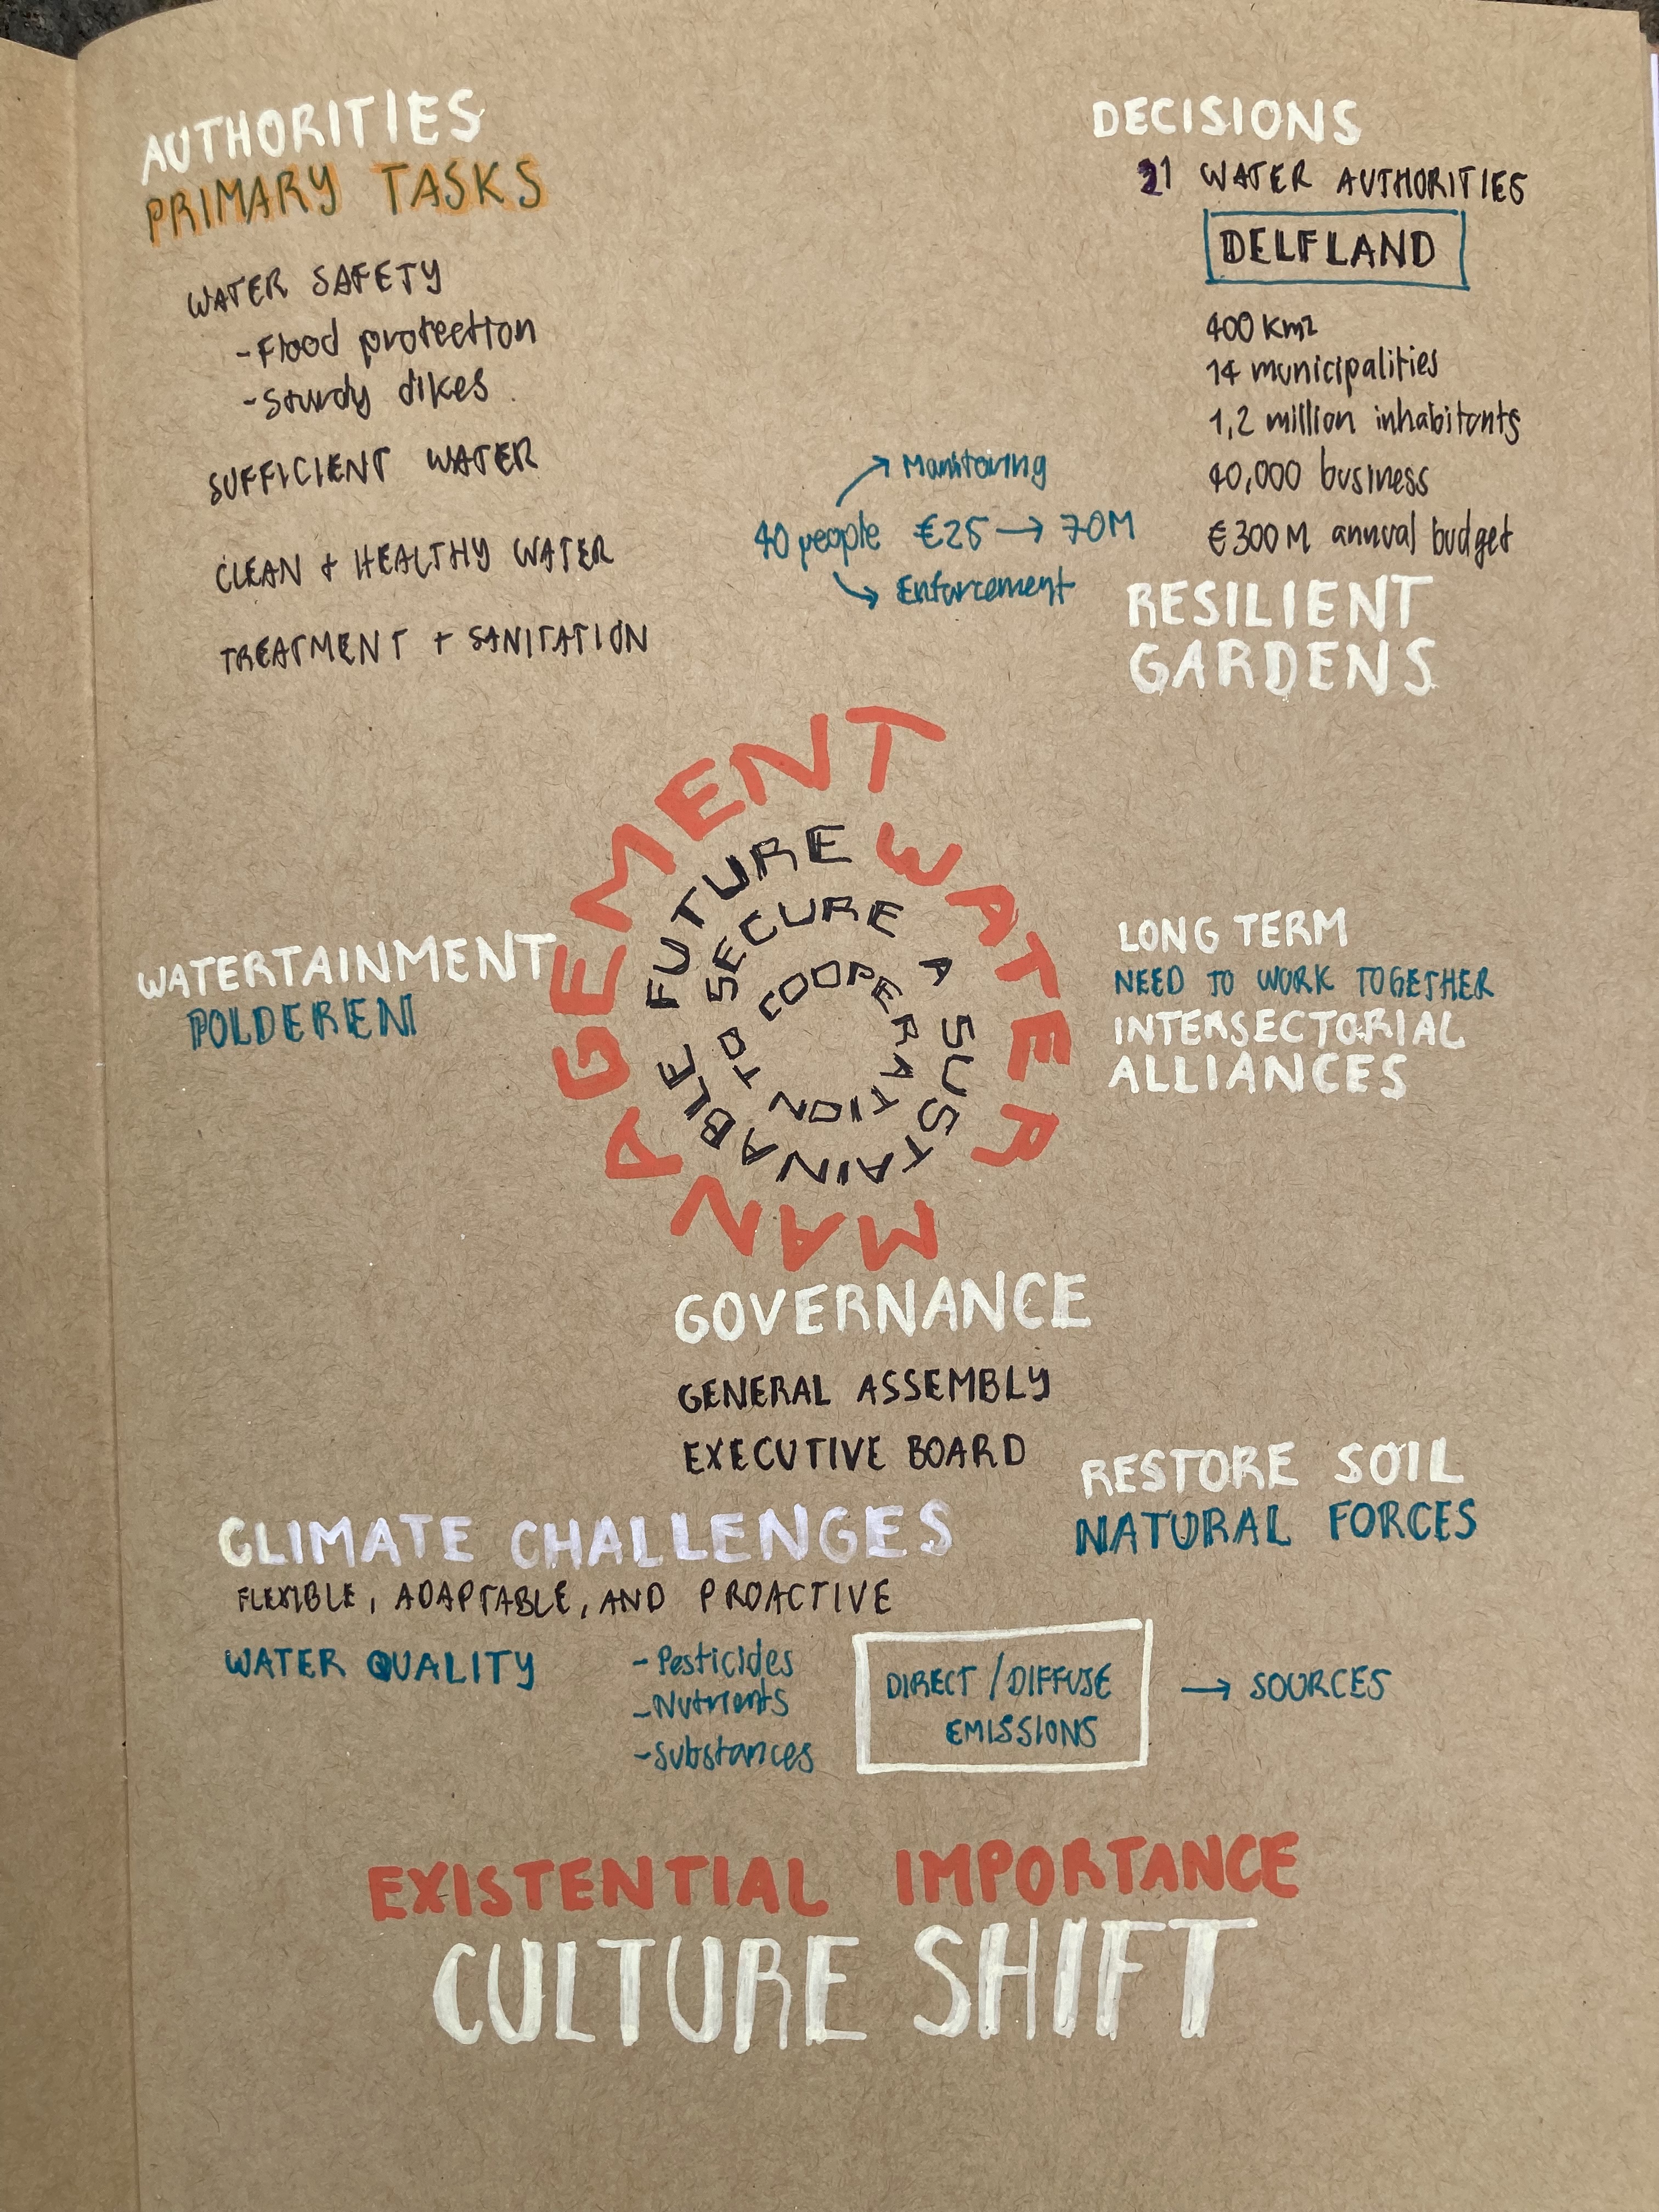 AUTHORITIES
PRIMARY TASKS
WATER SAFETY
-Flood protection
-Sturdy dikes
SUFFICIENT WATER
CLEAN + HEALTHY WATER
TREATMENT + SANITATION
DECISIONS
21 WATER AUTHORITIES
DELFLAND
400 Km2
14 municipalities
1,2 million inhabitants
40,000 business
€300M annual budget
Monitoring
40 people €25 → 70M
Enforcement
RESILIENT
GARDENS
WATER MANAGEMENT
COOPERATION TO SECURE A SUSTAINABLE FUTURE
WATERTAINMENT
POLDEREN
LONG TERM
NEED TO WORK TOGETHER
INTERSECTORIAL
ALLIANCES
GOVERNANCE
GENERAL ASSEMBLY
EXECUTIVE BOARD
RESTORE SOIL
NATURAL FORCES
CLIMATE CHALLENGES
FLEXIBLE, ADAPTABLE, AND PROACTIVE
WATER QUALITY
-Pesticides
-Nutrients
-Substances
DIRECT / DIFFUSE
EMISSIONS
→ SOURCES
EXISTENTIAL IMPORTANCE
CULTURE SHIFT